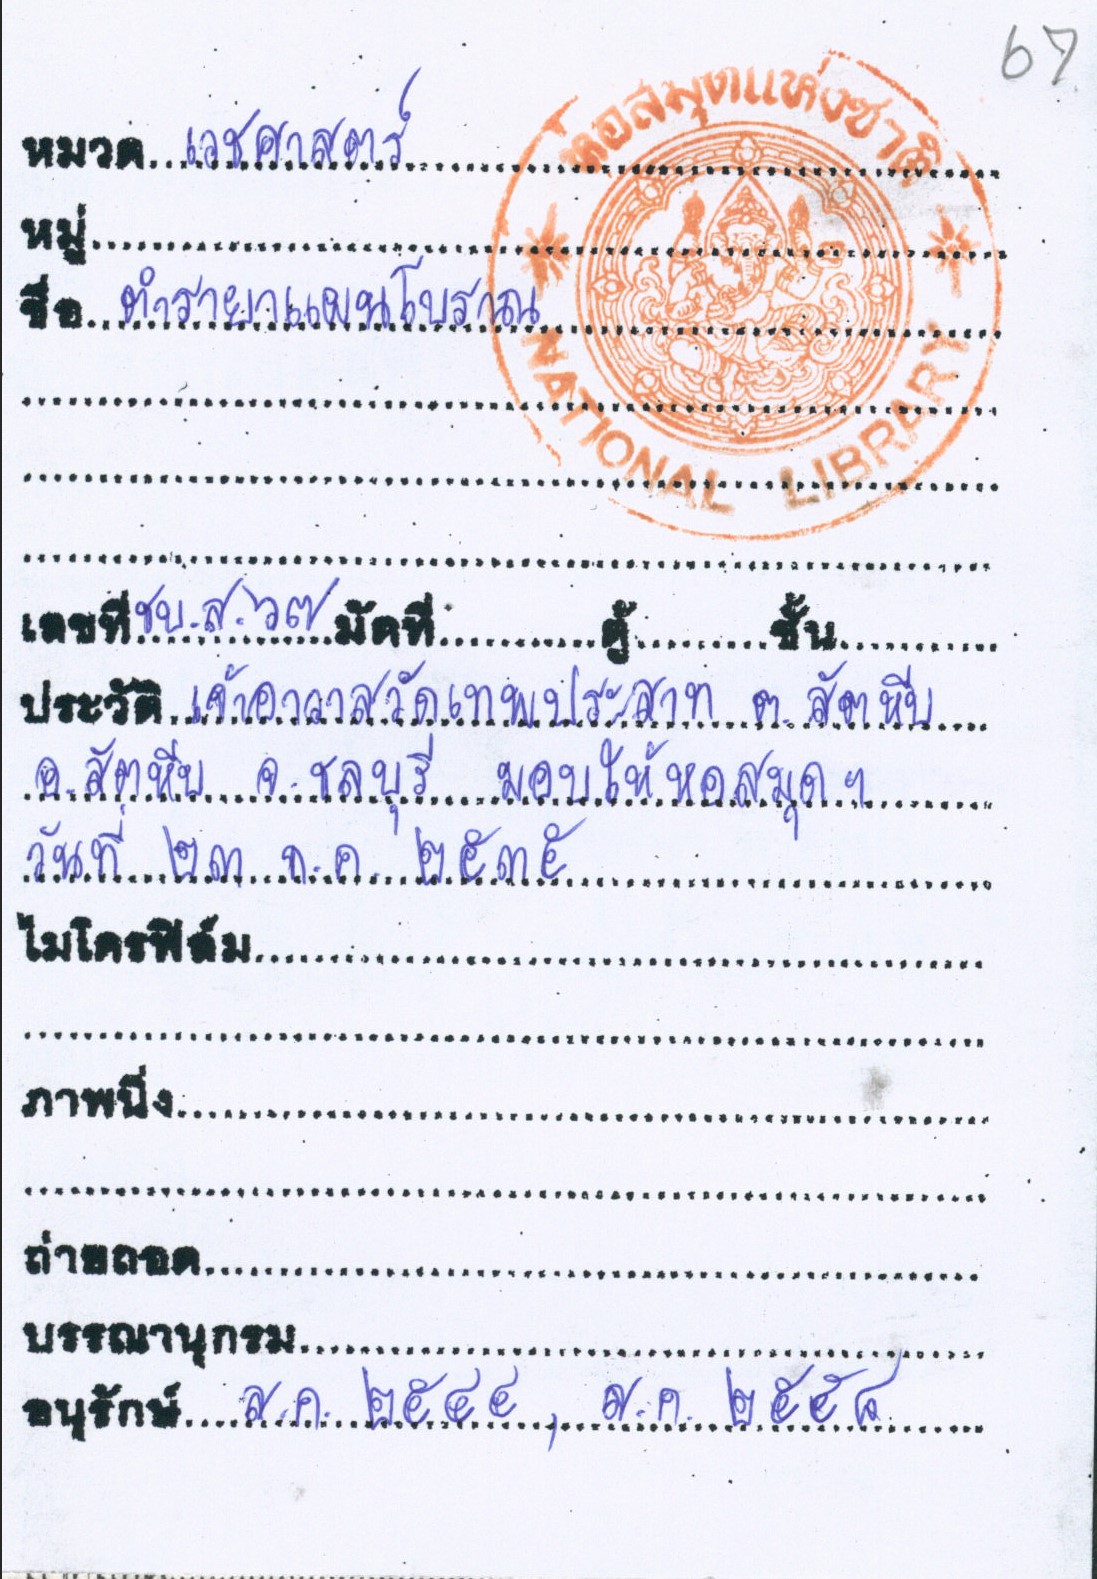 67
หอสมุดแห่งชาติ
NATIONAL LIBRARY
หมวด เวชศาสตร์
หมู่
ชื่อ ตำรายาแผนโบราณ
เลขที่ ชบ.ส.๖๗ มัดที่ ตู้ ชั้น
ประวัติ เจ้าอาวาสวัดเทพประสาท ต. สัตหีบ
อ. สัตหีบ จ. ชลบุรี มอบให้หอสมุดฯ
วันที่ ๒๓ ก.ค. ๒๕๓๕
ไมโครฟิล์ม
ภาพนิ่ง
ถ่ายถอด
บรรณานุกรม
อนุรักษ์ ส.ค. ๒๕๔๔ , ส.ค. ๒๕๕๘